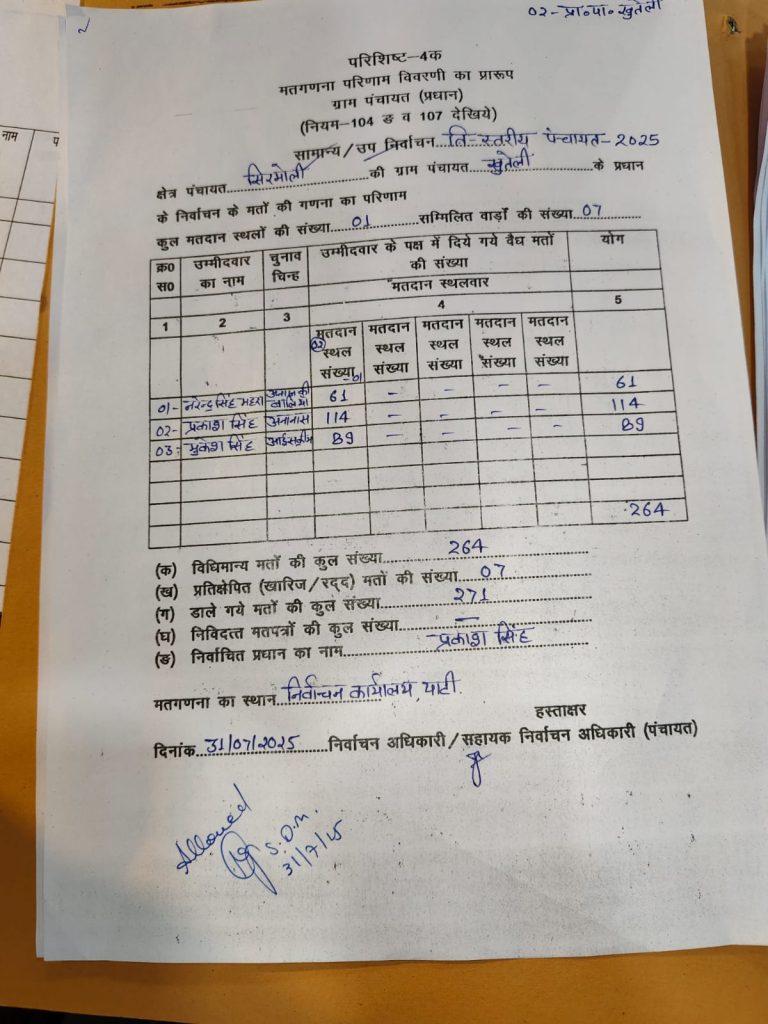 02- प्रा०पा० खुतेली
परिशिष्ट–4क
मतगणना परिणाम विवरणी का प्रारूप
ग्राम पंचायत (प्रधान)
(नियम–104 ङ व 107 देखिये)
सामान्य/उप निर्वाचन ति-स्तरीय पंचायत-2025
क्षेत्र पंचायत सिरमोली की ग्राम पंचायत खुतेली के प्रधान
के निर्वाचन के मतों की गणना का परिणाम
कुल मतदान स्थलों की संख्या 01 सम्मिलित वार्डों की संख्या 07
क्र0 स0 उम्मीदवार का नाम चुनाव चिन्ह उम्मीदवार के पक्ष में दिये गये वैध मतों की संख्या योग
मतदान स्थलवार
1 2 3 4 5
मतदान स्थल संख्या -01 मतदान स्थल संख्या मतदान स्थल संख्या मतदान स्थल संख्या मतदान स्थल संख्या
01- नरेन्द्र सिंह 61 – – – – 61
02- प्रकाश सिंह अनानास 114 – – – – 114
03: मुकेश सिंह आईसक्रीम 89 – – – – 89
264
(क) विधिमान्य मतों की कुल संख्या 264
(ख) प्रतिक्षेपित (खारिज/रद्द) मतों की संख्या 07
(ग) डाले गये मतों की कुल संख्या 271
(घ) निविदत्त मतपत्रों की कुल संख्या —
(ङ) निर्वाचित प्रधान का नाम प्रकाश सिंह
मतगणना का स्थान निर्वाचन कार्यालय, पाटी.
हस्ताक्षर
दिनांक 31/07/2025 निर्वाचन अधिकारी/सहायक निर्वाचन अधिकारी (पंचायत)
Allowed
S.D.M.
31/7/25